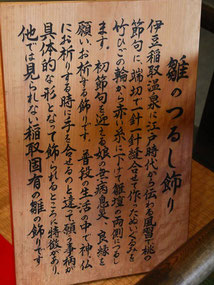 雛のつるし飾り
伊豆稲取温泉に江戸時代から伝わる風習で桃の
節句に、端切で一針一針縫合せて作ったぬいぐるみを
竹ひごの輪から赤い糸に下げて雛壇の両側につるし
ます。初節句を迎える娘の無病息災、良縁を
願い、お祈りする飾りです。普段の生活の中で神仏
にお祈りする時に手を合せるのと違って願う事柄が
具体的な形となって飾られるところに特徴があり、
他では見られない稲取固有の雛の飾りです。